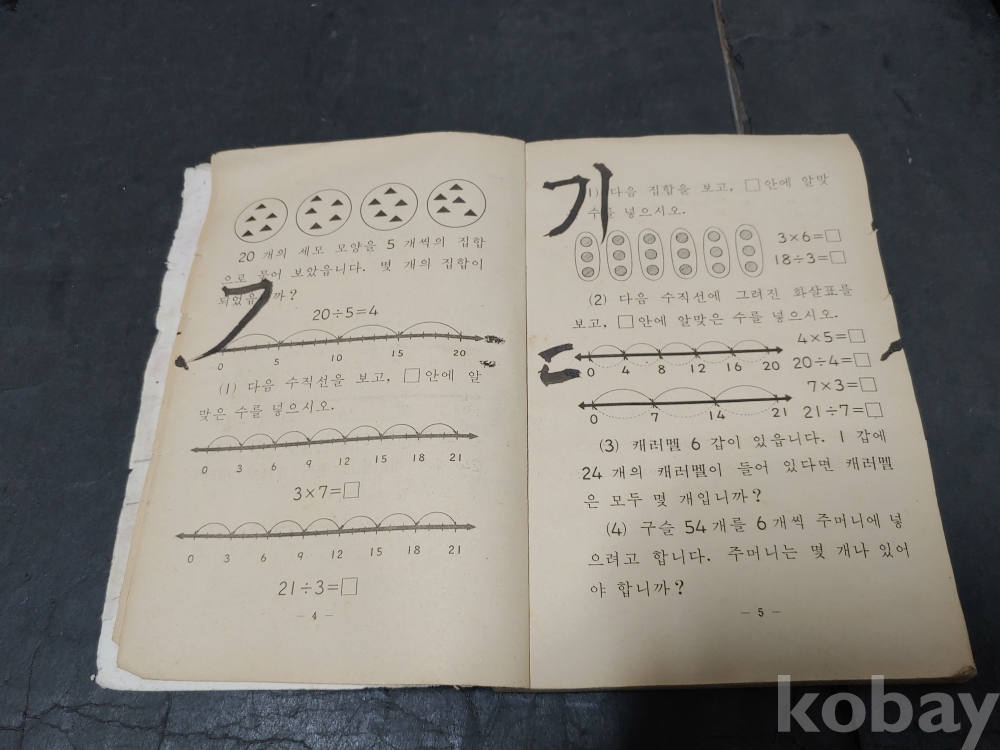 20 개의 세모 모양을 5 개씩의 집합
으로 묶어 보았읍니다. 몇 개의 집합이
되었읍니까?
20÷5=4
0 5 10 15 20
(1) 다음 수직선을 보고, □안에 알
맞은 수를 넣으시오.
0 3 6 9 12 15 18 21
3×7=□
0 3 6 9 12 15 18 21
21÷3=□
— 4 —
기
(1) 다음 집합을 보고, □안에 알맞
수를 넣으시오.
3×6=□
18÷3=□
(2) 다음 수직선에 그려진 화살표를
보고, □안에 알맞은 수를 넣으시오.
4×5=□
0 4 8 12 16 20
20÷4=□
7×3=□
0 7 14 21
21÷7=□
(3) 캐러멜 6 갑이 있읍니다. 1 갑에
24 개의 캐러멜이 들어 있다면 캐러멜
은 모두 몇 개입니까?
(4) 구슬 54 개를 6 개씩 주머니에 넣
으려고 합니다. 주머니는 몇 개나 있어
야 합니까?
— 5 —
kobay